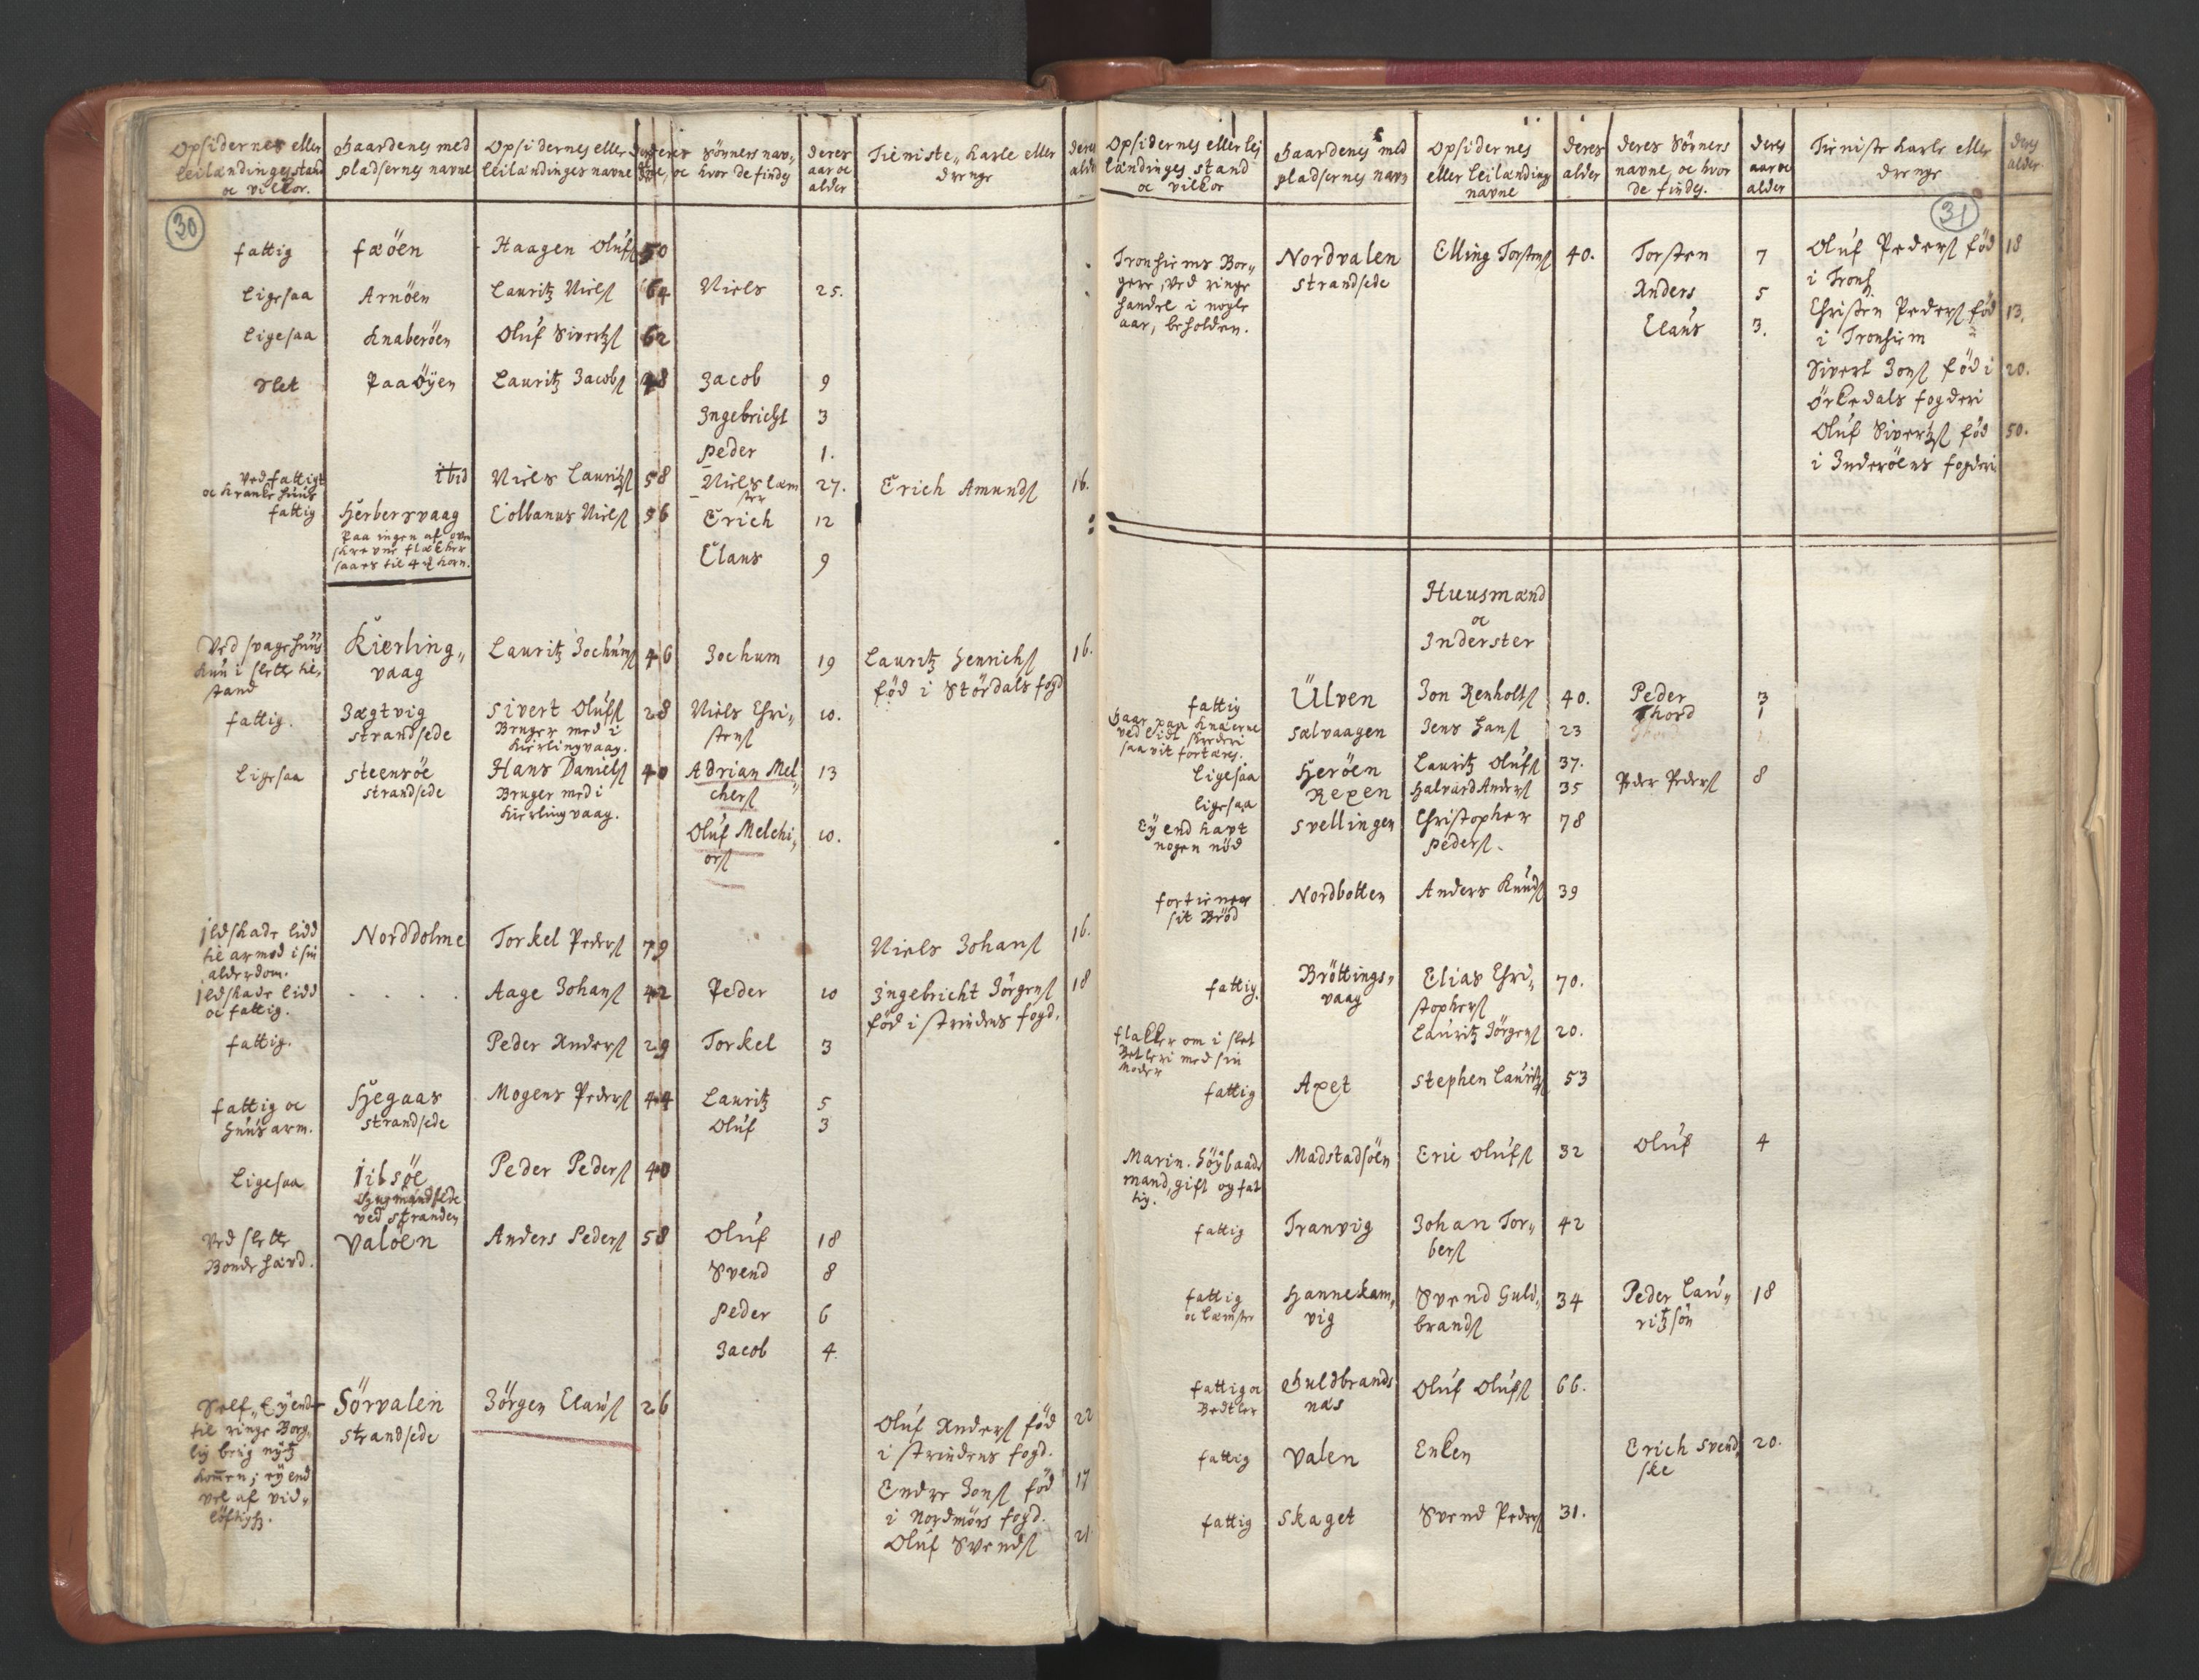 Opsidernes eller
leilændinges stand
oc vilkor.
Gaardenes med
pladsernes navne
Opsidernes eller
leilændinges navne
Sønners nav,,
hvor de findes
deres
aar oc
alder
Tieniste,, Karle eller
drenge
30
fattig fæöen Haagen Olufs 50
ligesaa Arnöen Lauritz Niels 64 Niels 25.
ligesaa Knaberöen Oluf Sivertzs 62
slet Paaöyen Lauritz Jacobs 48 Jacob 9
Ingebricht 3
Peder 1.
Ved fattigt
oc kranke huus
ibid Niels Lauritzs 58 Niels læm
ster 27. Erich Amunds 16.
fattig Herbersvaag Colbanus Niels 56 Erich 12
Paa ingen af oven
skrevne flække
saaes til 4 korn.
Claus 9
Ved svage huus
kun i slette til,
stand
Kierling,,
vaag
Lauritz Jochums 46 Jochum 19 Lauritz Henrichs 16.
fød i Størdals fogd
fattig. Jægtvig
strandsede
Sivert Olufs 28
Bruger med i
Kierlingvaag.
Niels Chri,,
stens 10.
Ligesaa steensøe
strandsede
Hans Daniels 40
Bruger med i
Kierlingvaag.
Adrian Mel,,
chers 13
Oluf Melchi,,
ors 10.
ildskade lidd
til armod i sin
alderdom.
Norddolme Torkel Peders 79 Niels Johans 16.
ildskade lidd
oc fattig.
. . . . Aage Johans 42 Peder 10 Ingebricht Jörgens 18
fød i strindens fogd.
fattig. Peder Anders 29 Torkel 3
fattig oc
huusarm.
Hegaas
strandsede
Mogens Peders 44 Lauritz 5
Oluf 3
Ligesaa jibsøe
Huusmandsede
ved stranden
Peder Peders 40
Ved slette
Bonde færd.
Valöen Anders Peders 58 Oluf 18
Svend 8
Peder 6
Jacob 4
Self,, Eyende
til ringe Borg,
kommen; ey end
vel af vid,,
löftigh.
Sörvalen
strandsede
Jörgen Claus 26
Oluf Anders fød 22
i strindens fogd.
Endre Jons fød 17
i Nordmörs fogd.
Oluf Svends 21
Opsidernes eller lej
lændinges stand
oc vilkor
Gaardenes med
pladsernes navn
Opsidernes
eller leilændings
navne
deres
alder
deres Sønners
navne, oc hvor
de findes.
deres
aar oc
alder
Tieniste karle eller
drenge
deres
alder.
31
Tronhiems Bor,,
gere, ved ringe
handel i nogle
aar, beholden.
Nordvalen
strandsede
Elling Torstens 40. Torsten 7
Anders 5
Claus 3.
Oluf Peders fød 18
i Tronh.
Christen Peders fød 13.
i Tronhiem
Sivert Jons fød i 20.
Örkedals fogderi
Oluf Sivertzs fød 50.
i Inderöens fogderi
Huusmænd
oc
Inderster
fattig Ulven Jon Renholts 40. Peder 3
Thord 1
sælvaagen Jens Hans 23
saavit fortæres.
ligesaa Heröen Lauritz Olufs 37.
ligesaa Rexen Halvard Anders 35 Peder Peders 8
Ey end havt
nogen nöd
svellingen Christopher
Peders. 78
fortiener
sit Bröd
Nordbotten Anders Knuds 39
fattig. Bröttings,,
vaag
Elias Chri,,
stophers 70.
flakker om i slet
Betleri med sin
Moder
Lauritz Jörgens 20.
fattig Axet Stephen Lauritzs 53
Marin. Höybaads
mand, gift og fat
tig.
Madstadsöen Eric Olufs 32 Oluf 4
fattig Tranvig Johan Tor,,
bers 42
fattig
oc læmster
Hannekam,,
vig
Svend Guld,,
brands 34
Peder Lau,,
ritzsön 18
fattig oc
Bedtler
Guldbrands
næs
Oluf Olufs 66.
fattig Valen Enken Erich Svend,,
ske 20.
fattig Skaget Svend Peders 31.